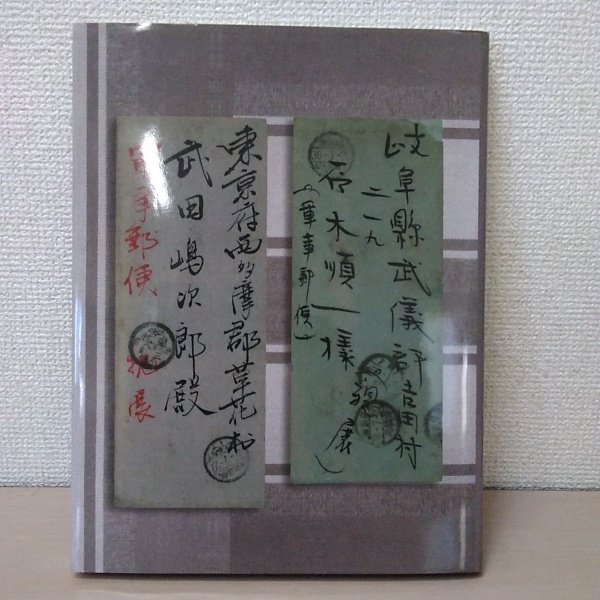 岐阜縣武儀郡吉田村
二一九
石木順一様
親展
(軍事郵便)
東京府西多摩郡草花村
武田嶋次郎殿
軍事郵便 親展